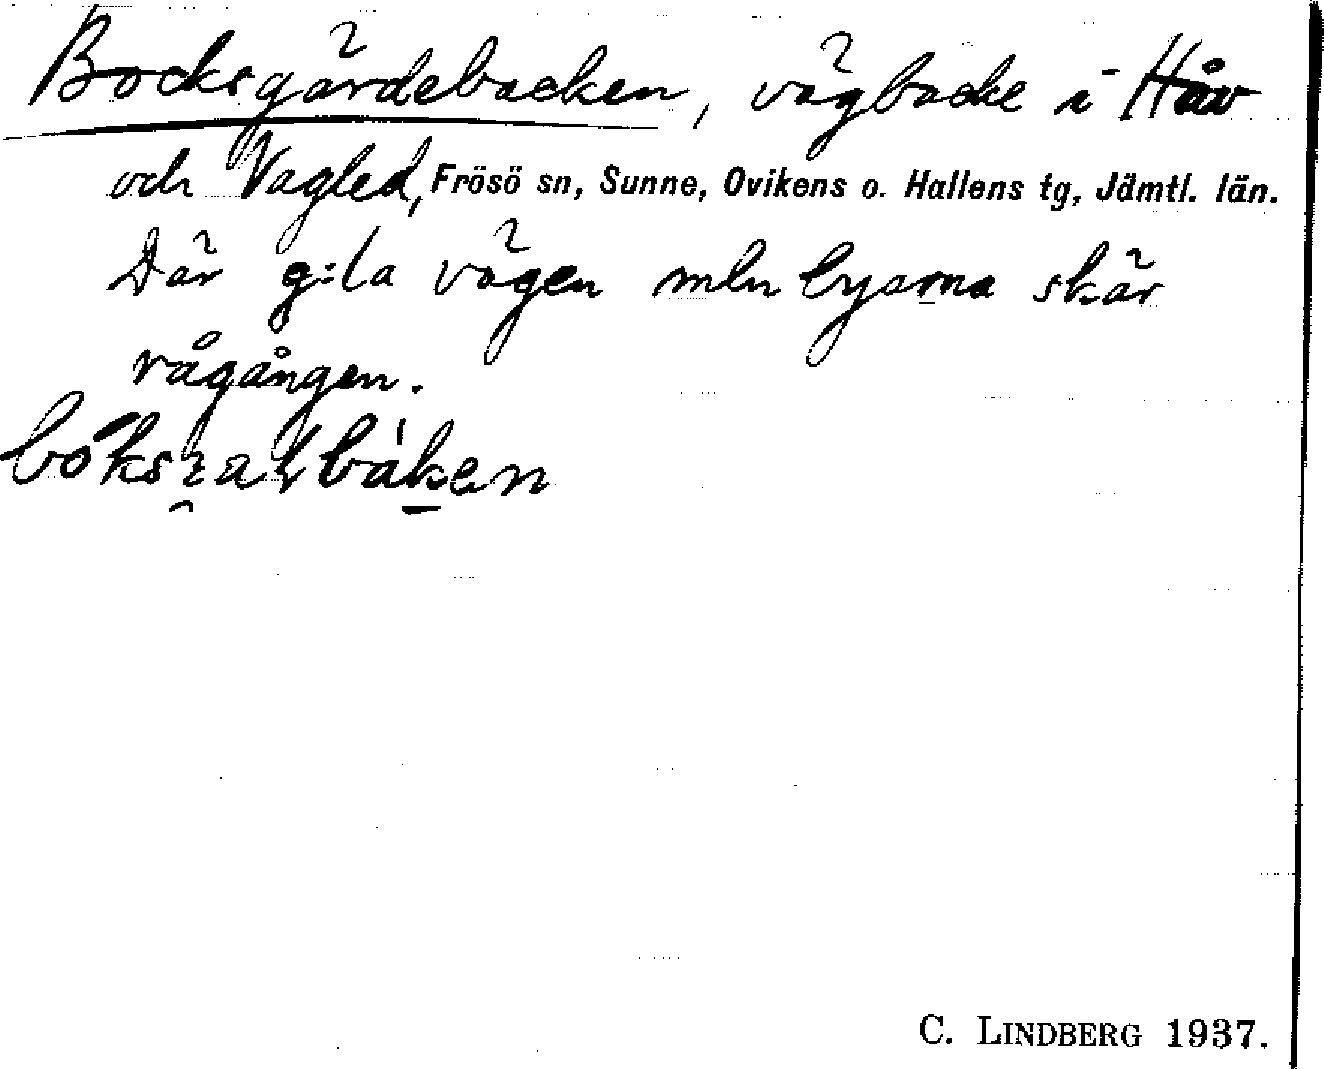 Bocksgärdebacken, vägbacke i Håv
och Vagled, Frösö sn, Sunne, Ovikens o. Hallens tg, Jämtl. län.
Där g:la vägen mln byarna skär
rågången.
C. LINDBERG 1937.